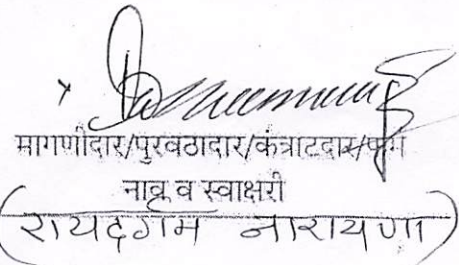 मागणीदार/पुरवठादार/कंत्राटदार/
नाव व स्वाक्षरी
(रायदर्गम नारायणा)